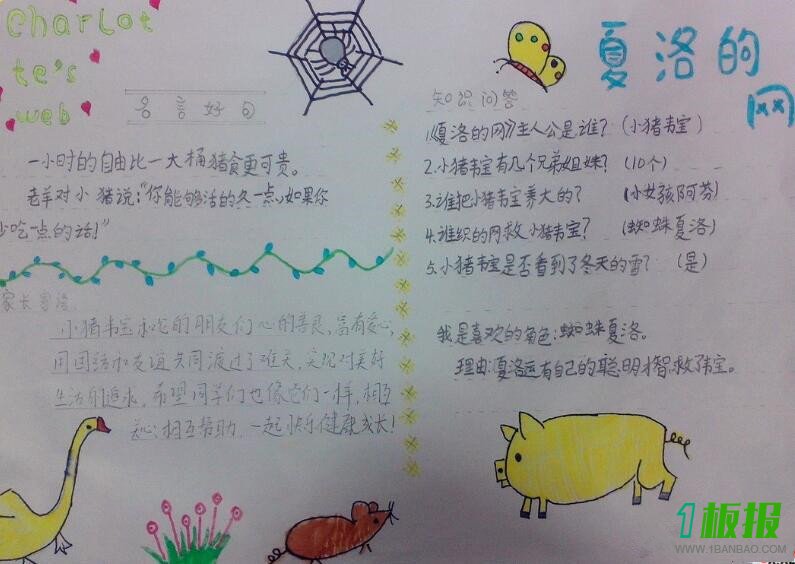 Charlot
te's
web
名言好句
一小时的自由比一大桶猪食更可贵。
老羊对小猪说:“你能够活的久一点,如果你
少吃一点的话!”
家长寄语
小猪韦宝和它的朋友们心的善良,富有爱心,
用团结和友谊共同渡过了难关,实现对美好
生活的追求,希望同学们也像它们一样,相互
关心,相互帮助,一起快乐健康成长!
夏洛的
网
知识问答
1.《夏洛的网》主人公是谁? (小猪韦宝)
2.小猪韦宝有几个兄弟姐妹? (10个)
3.谁把小猪韦宝养大的? (小女孩阿芬)
4.谁织的网救小猪韦宝? (蜘蛛夏洛)
5.小猪韦宝是否看到了冬天的雪? (是)
我是喜欢的角色:蜘蛛夏洛。
理由:夏洛运有自己的聪明才智救了韦宝。
1板报
WWW.1BANBAO.COM